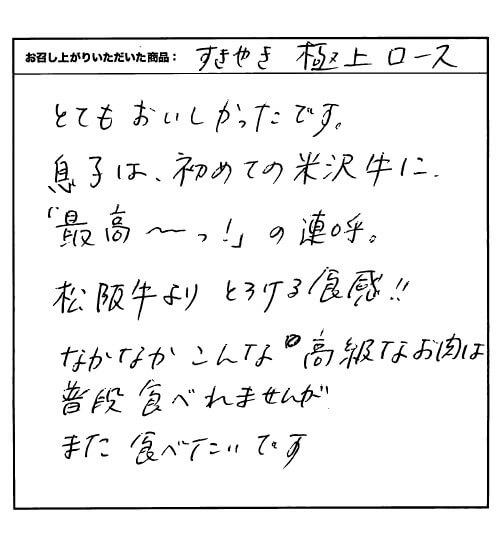 お召し上がりいただいた商品： すきやき 極上 ロース
とてもおいしかったです。
息子は、初めての米沢牛に、
「最高〜っ!」の連呼。
松阪牛より とろける食感!!
なかなか こんな 高級なお肉は
普段食べれませんが
また 食べたいです